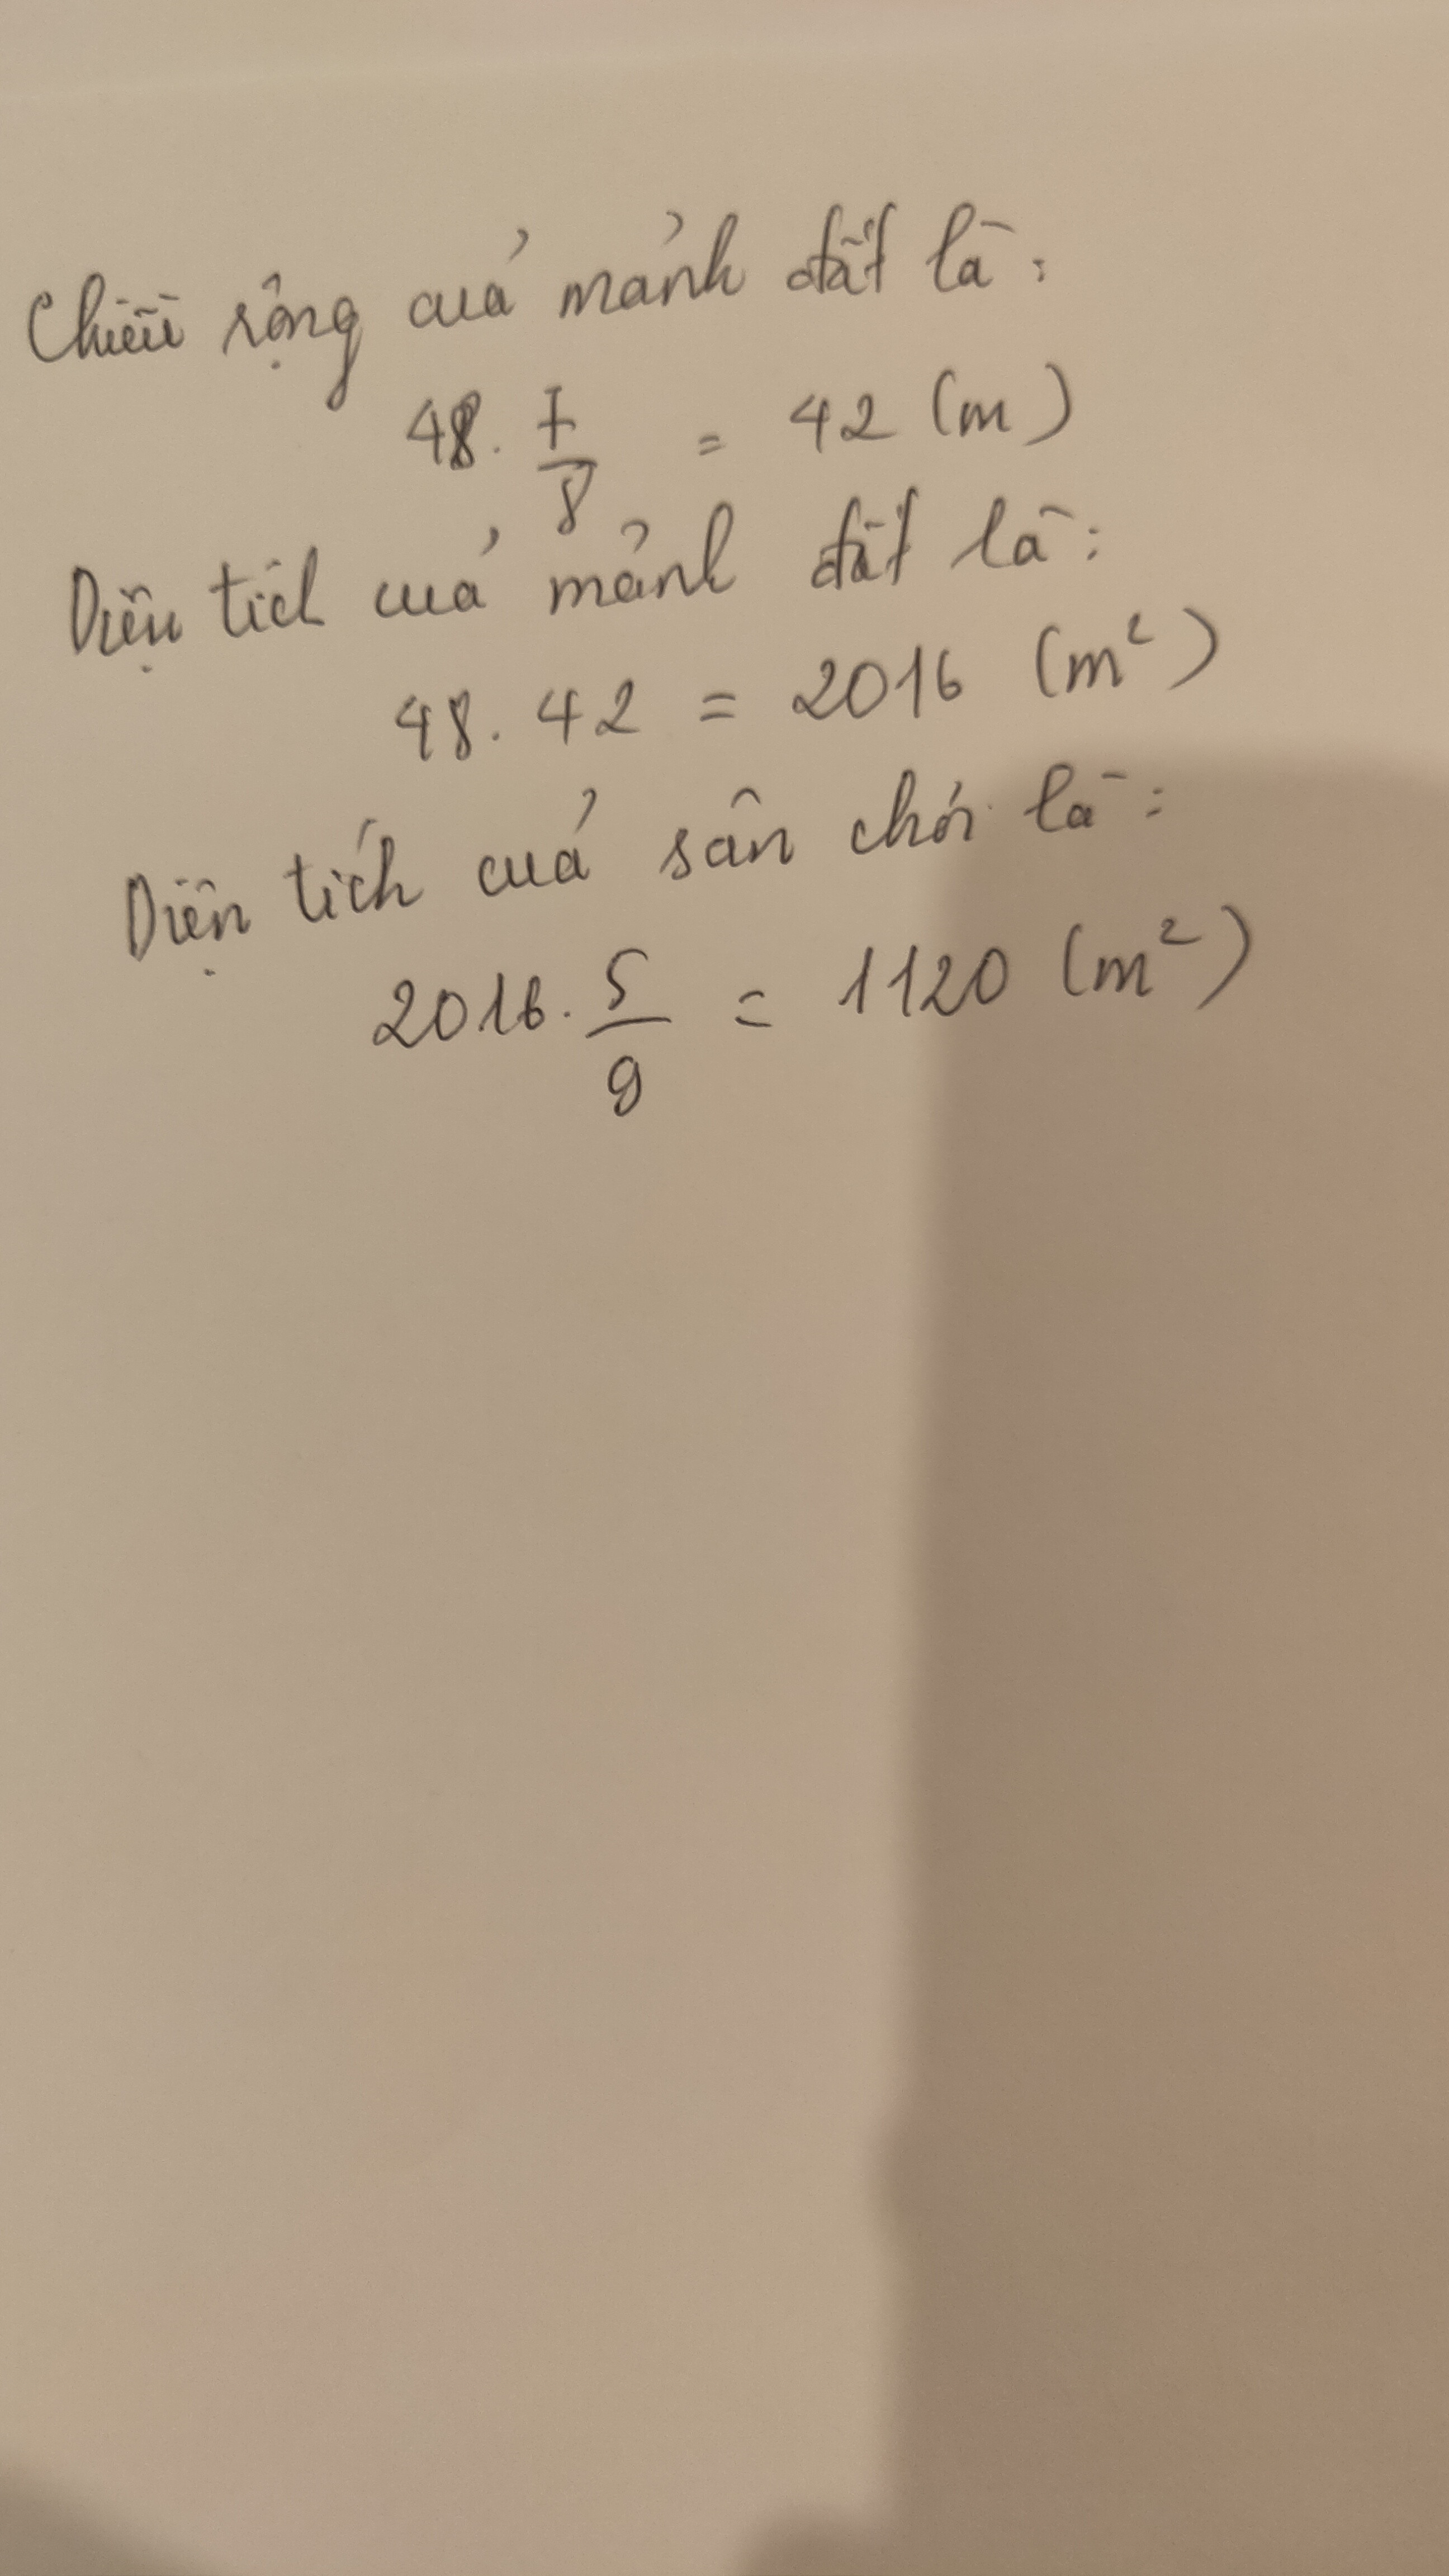 Chiều rộng của mảnh đất là:
48. 7/8 = 42 (m)
Diện tích của mảnh đất là:
48. 42 = 2016 (m²)
Diện tích của sân chơi là:
2016. 5/9 = 1120 (m²)